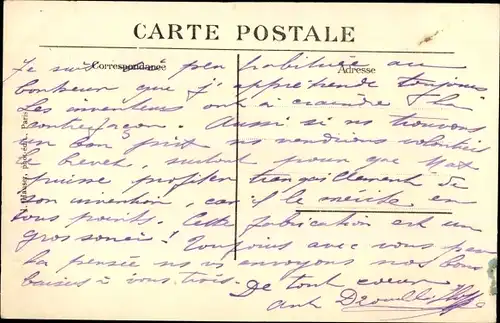 CARTE POSTALE
Correspondance
Adresse
Je suis si peu habituée au
bonheur que j'appréhende toujours
Les inventeurs ont à craindre la
contrefaçon. Aussi si ns trouvons
un bon prix ns vendrions volontiers
le brevet, surtout pour que
puisse profiter tranquillement de
son invention car il le mérite en
tous points. Cette fabrication est un
gros souci! Toujours avec vous par
la pensée ns vs envoyons nos bons
baisers à vous trois. De tout coeur